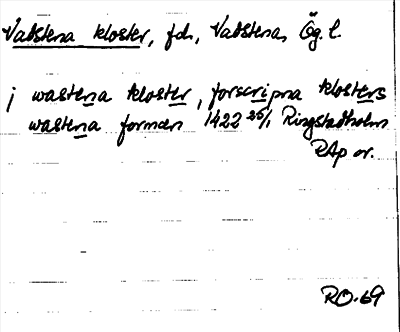 Vadstena kloster, fdn, Vadstena, Ög. l.
j wastena kloster, forscripna klosters
wastena forman 1422 25/1 Ringstadholm
RAp or.
RO-69